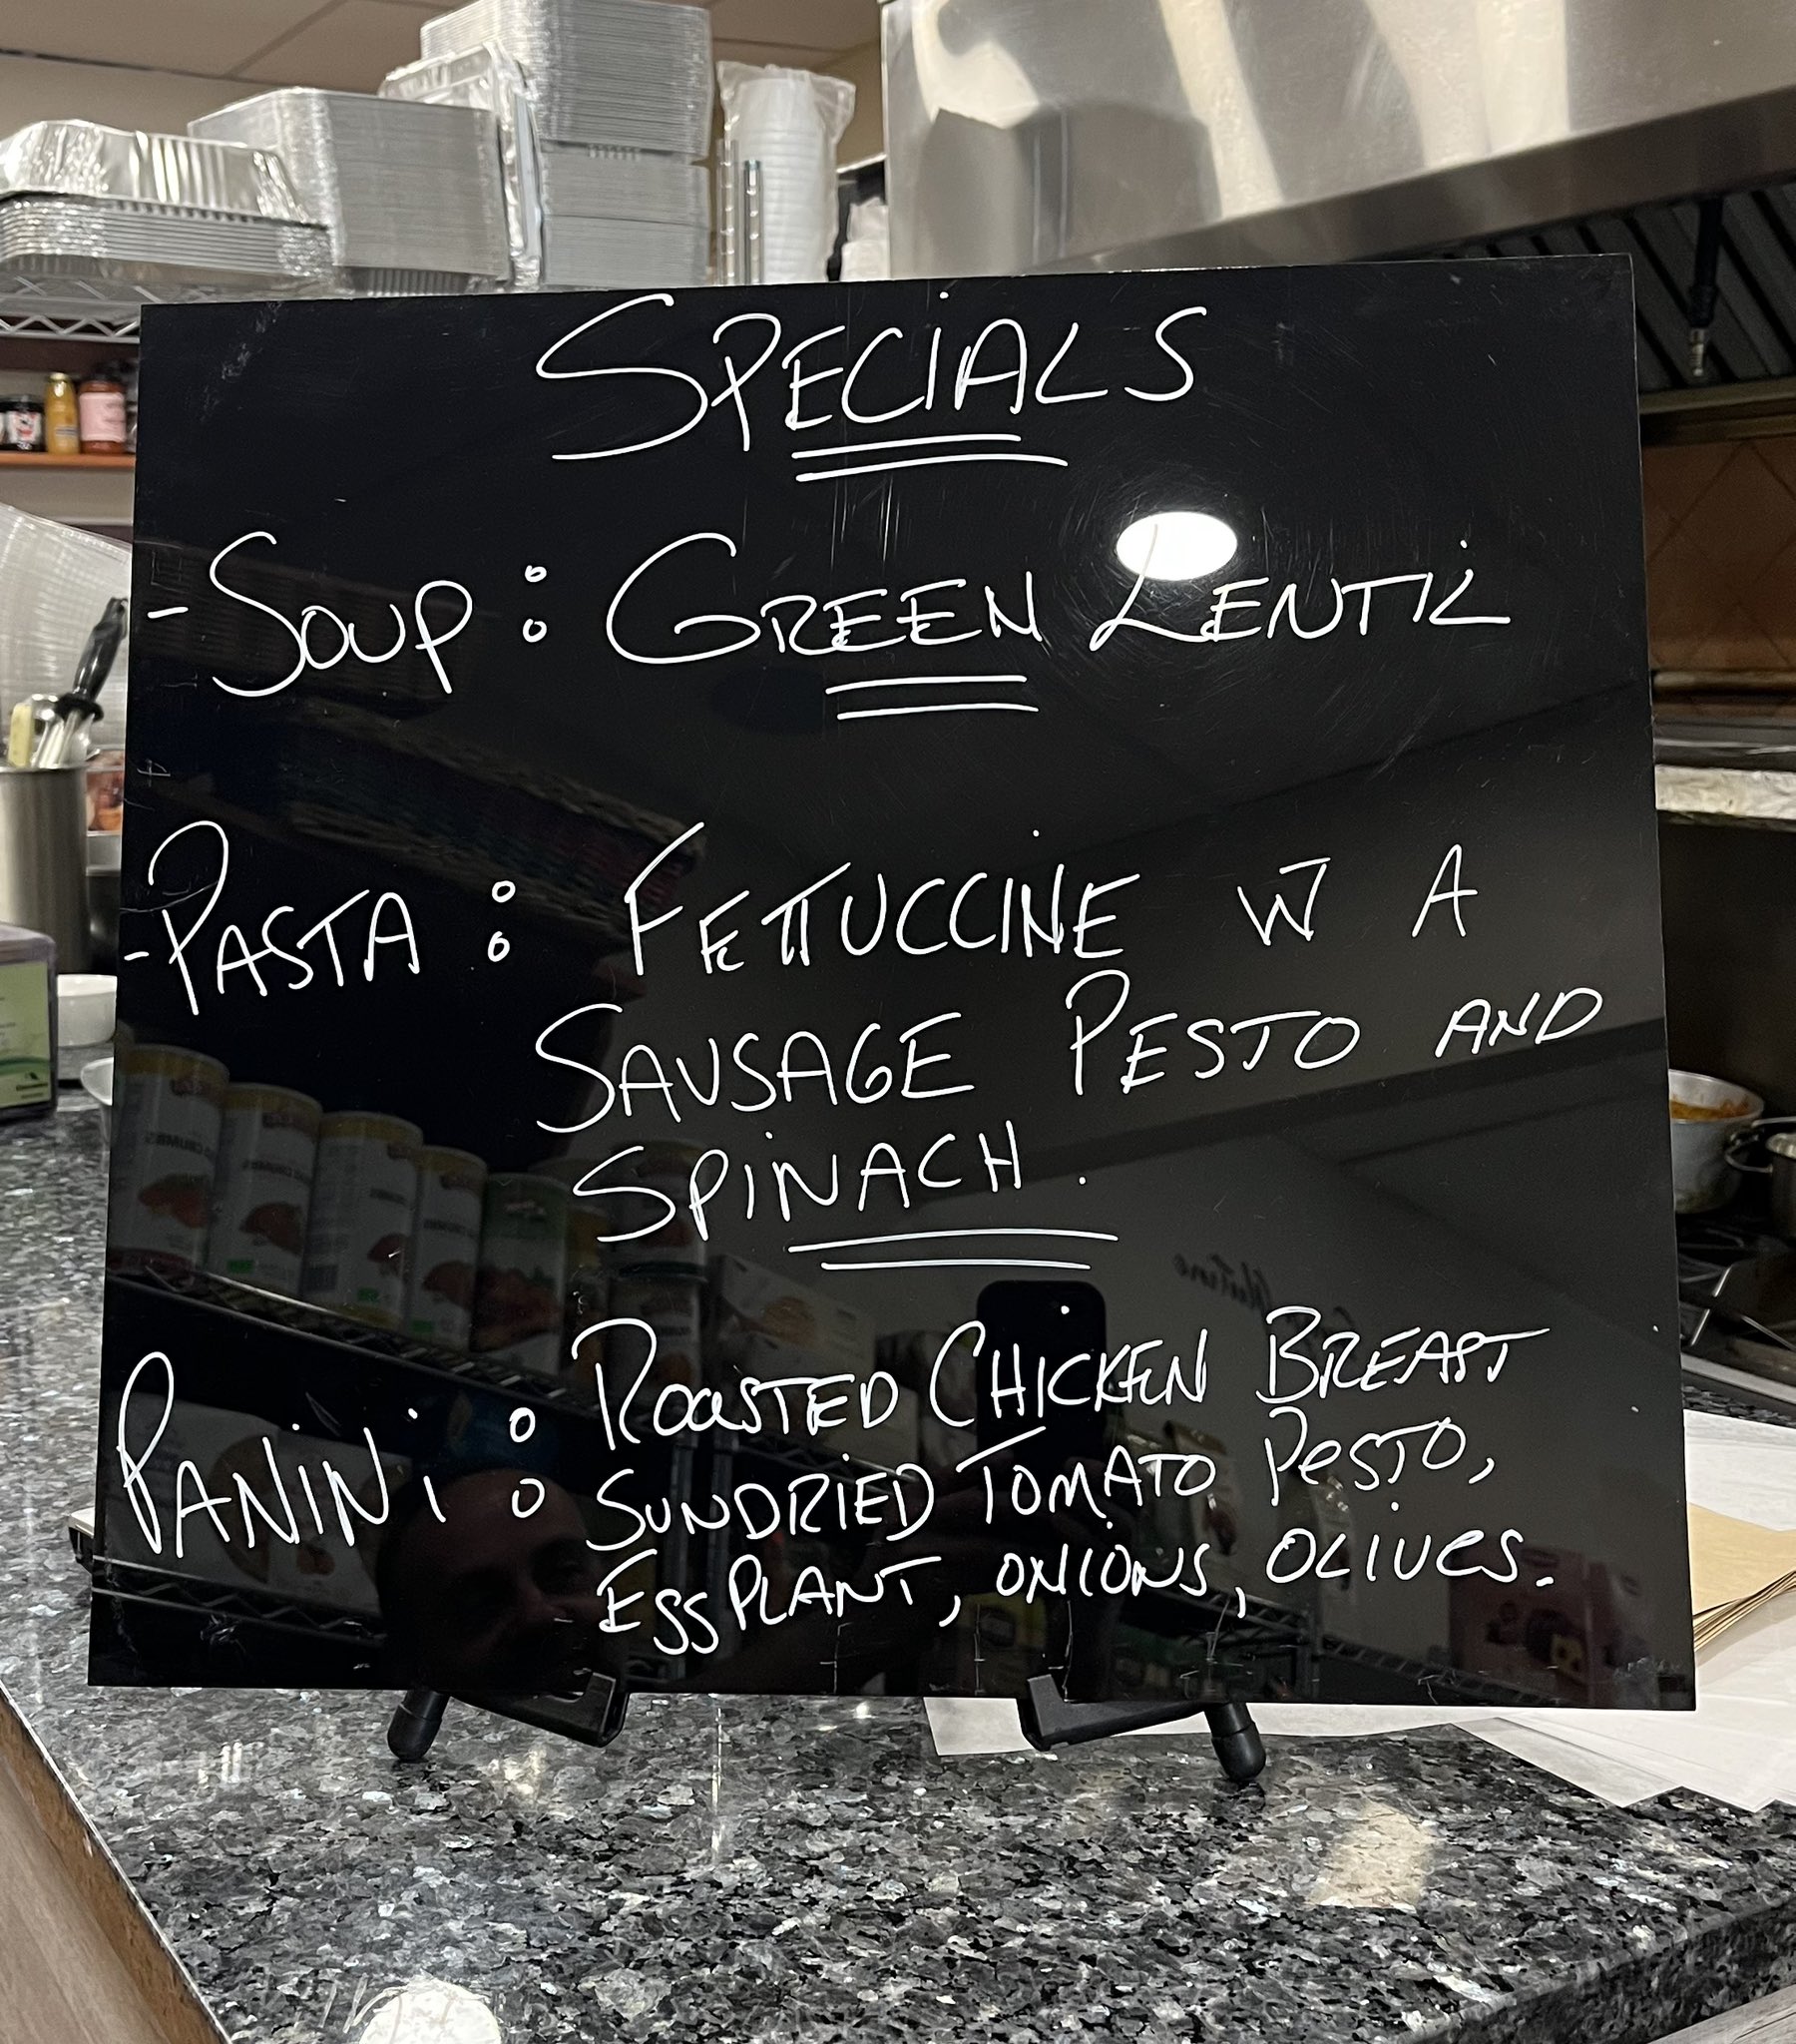 SPECIALS
- SOUP : GREEN LENTIL
- PASTA : FETTUCCINE W A
SAUSAGE PESTO AND
SPINACH .
PANINI : ROASTED CHICKEN BREAST
SUNDRIED TOMATO PESTO,
EGGPLANT, ONIONS, OLIVES.